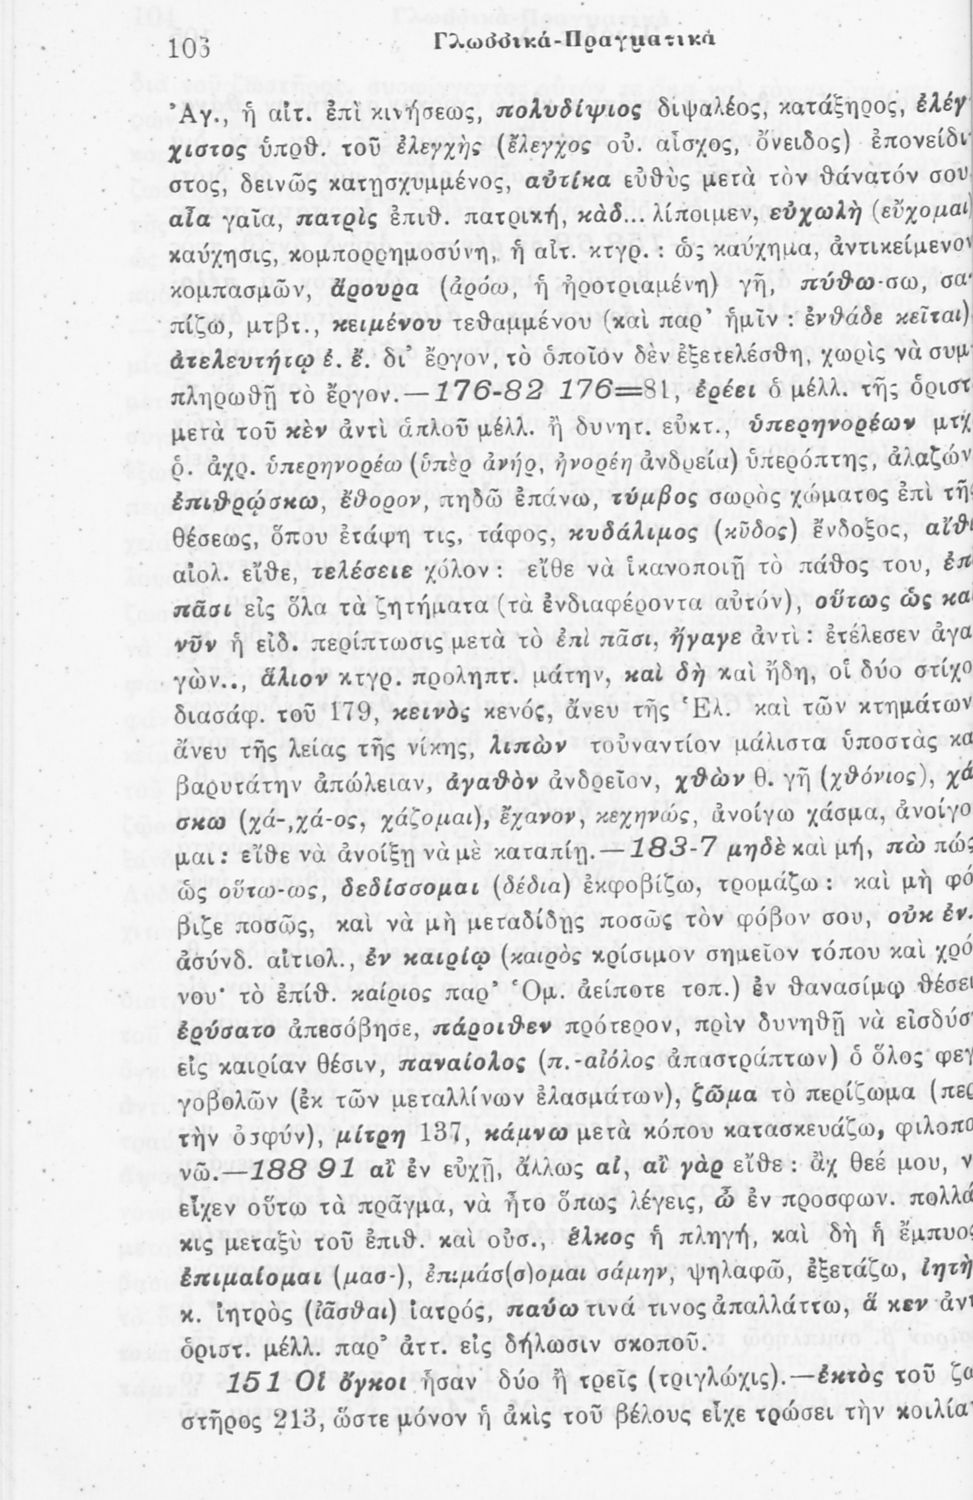 103
Γλωσσικά-Πραγματικά
Ἀγ., ἡ αἰτ. ἐπὶ κινήσεως, πολυδίψιος διψαλέος, κατάξηρος, ἐλέγ
χιστος ὑπρθ. τοῦ ἐλεγχὴς (ἔλεγχος οὐ. αἶσχος, ὄνειδος) ἐπονείδι
στος, δεινῶς κατῃσχυμμένος, αὐτίκα εὐθὺς μετὰ τὸν θάνατόν σου
αἶα γαῖα, πατρὶς ἐπιθ. πατρική, κὰδ... λίποιμεν, εὐχωλὴ (εὔχομαι)
καύχησις, κομπορρημοσύνη, ἡ αἰτ. κτγρ. : ὡς καύχημα, ἀντικείμενον
κομπασμῶν, ἄρουρα (ἀρόω, ἡ ἠροτριαμένη) γῆ, πύθω-σω, σα
πίζω, μτβτ., κειμένου τεθαμμένου (καὶ παρ' ἡμῖν : ἐνθάδε κεῖται)
ἀτελευτήτῳ ἐ. ἔ. δι' ἔργον, τὸ ὁποῖον δὲν ἐξετελέσθη, χωρὶς νὰ συμ
πληρωθῇ τὸ ἔργον.—176-82 176=81, ἐρέει ὁ μέλλ. τῆς ὁριστ
μετὰ τοῦ κὲν ἀντὶ ἁπλοῦ μέλλ. ἢ δυνητ. εὐκτ., ὑπερηνορέων μτχ
ῥ. ἀχρ. ὑπερηνορέω (ὑπὲρ ἀνήρ, ἠνορέη ἀνδρεία) ὑπερόπτης, ἀλαζών
ἐπιθρῴσκω, ἔθορον, πηδῶ ἐπάνω, τύμβος σωρὸς χώματος ἐπὶ τῆς
θέσεως, ὅπου ἐτάφη τις, τάφος, κυδάλιμος (κῦδος) ἔνδοξος, αἴθ
αἰολ. εἴθε, τελέσειε χόλον : εἴθε νὰ ἱκανοποιῇ τὸ πάθος του, ἐπ
πᾶσι εἰς ὅλα τὰ ζητήματα (τὰ ἐνδιαφέροντα αὐτόν), οὕτως ὡς κα
νῦν ἡ εἰδ. περίπτωσις μετὰ τὸ ἐπὶ πᾶσι, ἤγαγε ἀντὶ : ἐτέλεσεν ἀγα
γὼν.., ἅλιον κτγρ. προληπτ. μάτην, καὶ δὴ καὶ ἤδη, οἱ δύο στίχο
διασάφ. τοῦ 179, κεινὸς κενός, ἄνευ τῆς Ἑλ. καὶ τῶν κτημάτων
ἄνευ τῆς λείας τῆς νίκης, λιπὼν τοὐναντίον μάλιστα ὑποστὰς κα
βαρυτάτην ἀπώλειαν, ἀγαθὸν ἀνδρεῖον, χθὼν θ. γῆ (χθόνιος), χά
σκω (χά-,χά-ος, χάζομαι), ἔχανον, κεχηνώς, ἀνοίγω χάσμα, ἀνοίγο
μαι : εἴθε νὰ ἀνοίξῃ νὰ μὲ καταπίῃ.—183-7 μηδὲ καὶ μή, πὼ πώς
ὡς οὕτω-ως, δεδίσσομαι (δέδια) ἐκφοβίζω, τρομάζω : καὶ μὴ φό
βιζε ποσῶς, καὶ νὰ μὴ μεταδίδῃς ποσῶς τὸν φόβον σου, οὐκ ἐν.
ἀσύνδ. αἰτιολ., ἐν καιρίῳ (καιρὸς κρίσιμον σημεῖον τόπου καὶ χρό
νου· τὸ ἐπίθ. καίριος παρ' Ὁμ. ἀείποτε τοπ.) ἐν θανασίμῳ θέσει
ἐρύσατο ἀπεσόβησε, πάροιθεν πρότερον, πρὶν δυνηθῇ νὰ εἰσδύσ
εἰς καιρίαν θέσιν, παναίολος (π.-αἰόλος ἀπαστράπτων) ὁ ὅλος φεγ
γοβολῶν (ἐκ τῶν μεταλλίνων ἐλασμάτων), ζῶμα τὸ περίζωμα (περ
τὴν ὀσφύν), μίτρη 137, κάμνω μετὰ κόπου κατασκευάζω, φιλοπο
νῶ.—188 91 αἲ ἐν εὐχῇ, ἄλλως αἰ, αἲ γὰρ εἴθε : ἂχ θεέ μου, ν
εἶχεν οὕτω τὰ πρᾶγμα, νὰ ἦτο ὅπως λέγεις, ὦ ἐν προσφων. πολλά
κις μεταξὺ τοῦ ἐπιθ. καὶ οὐσ., ἕλκος ἡ πληγή, καὶ δὴ ἡ ἔμπυος
ἐπιμαίομαι (μασ-), ἐπιμάσ(σ)ομαι σάμην, ψηλαφῶ, ἐξετάζω, ἰητὴ
κ. ἰητρὸς (ἰᾶσθαι) ἰατρός, παύω τινά τινος ἀπαλλάττω, ἅ κεν ἀντ
ὁριστ. μέλλ. παρ' ἀττ. εἰς δήλωσιν σκοποῦ.
151 Οἱ ὄγκοι ἦσαν δύο ἢ τρεῖς (τριγλώχις).—ἐκτὸς τοῦ ζω
στῆρος 213, ὥστε μόνον ἡ ἀκὶς τοῦ βέλους εἶχε τρώσει τὴν κοιλία